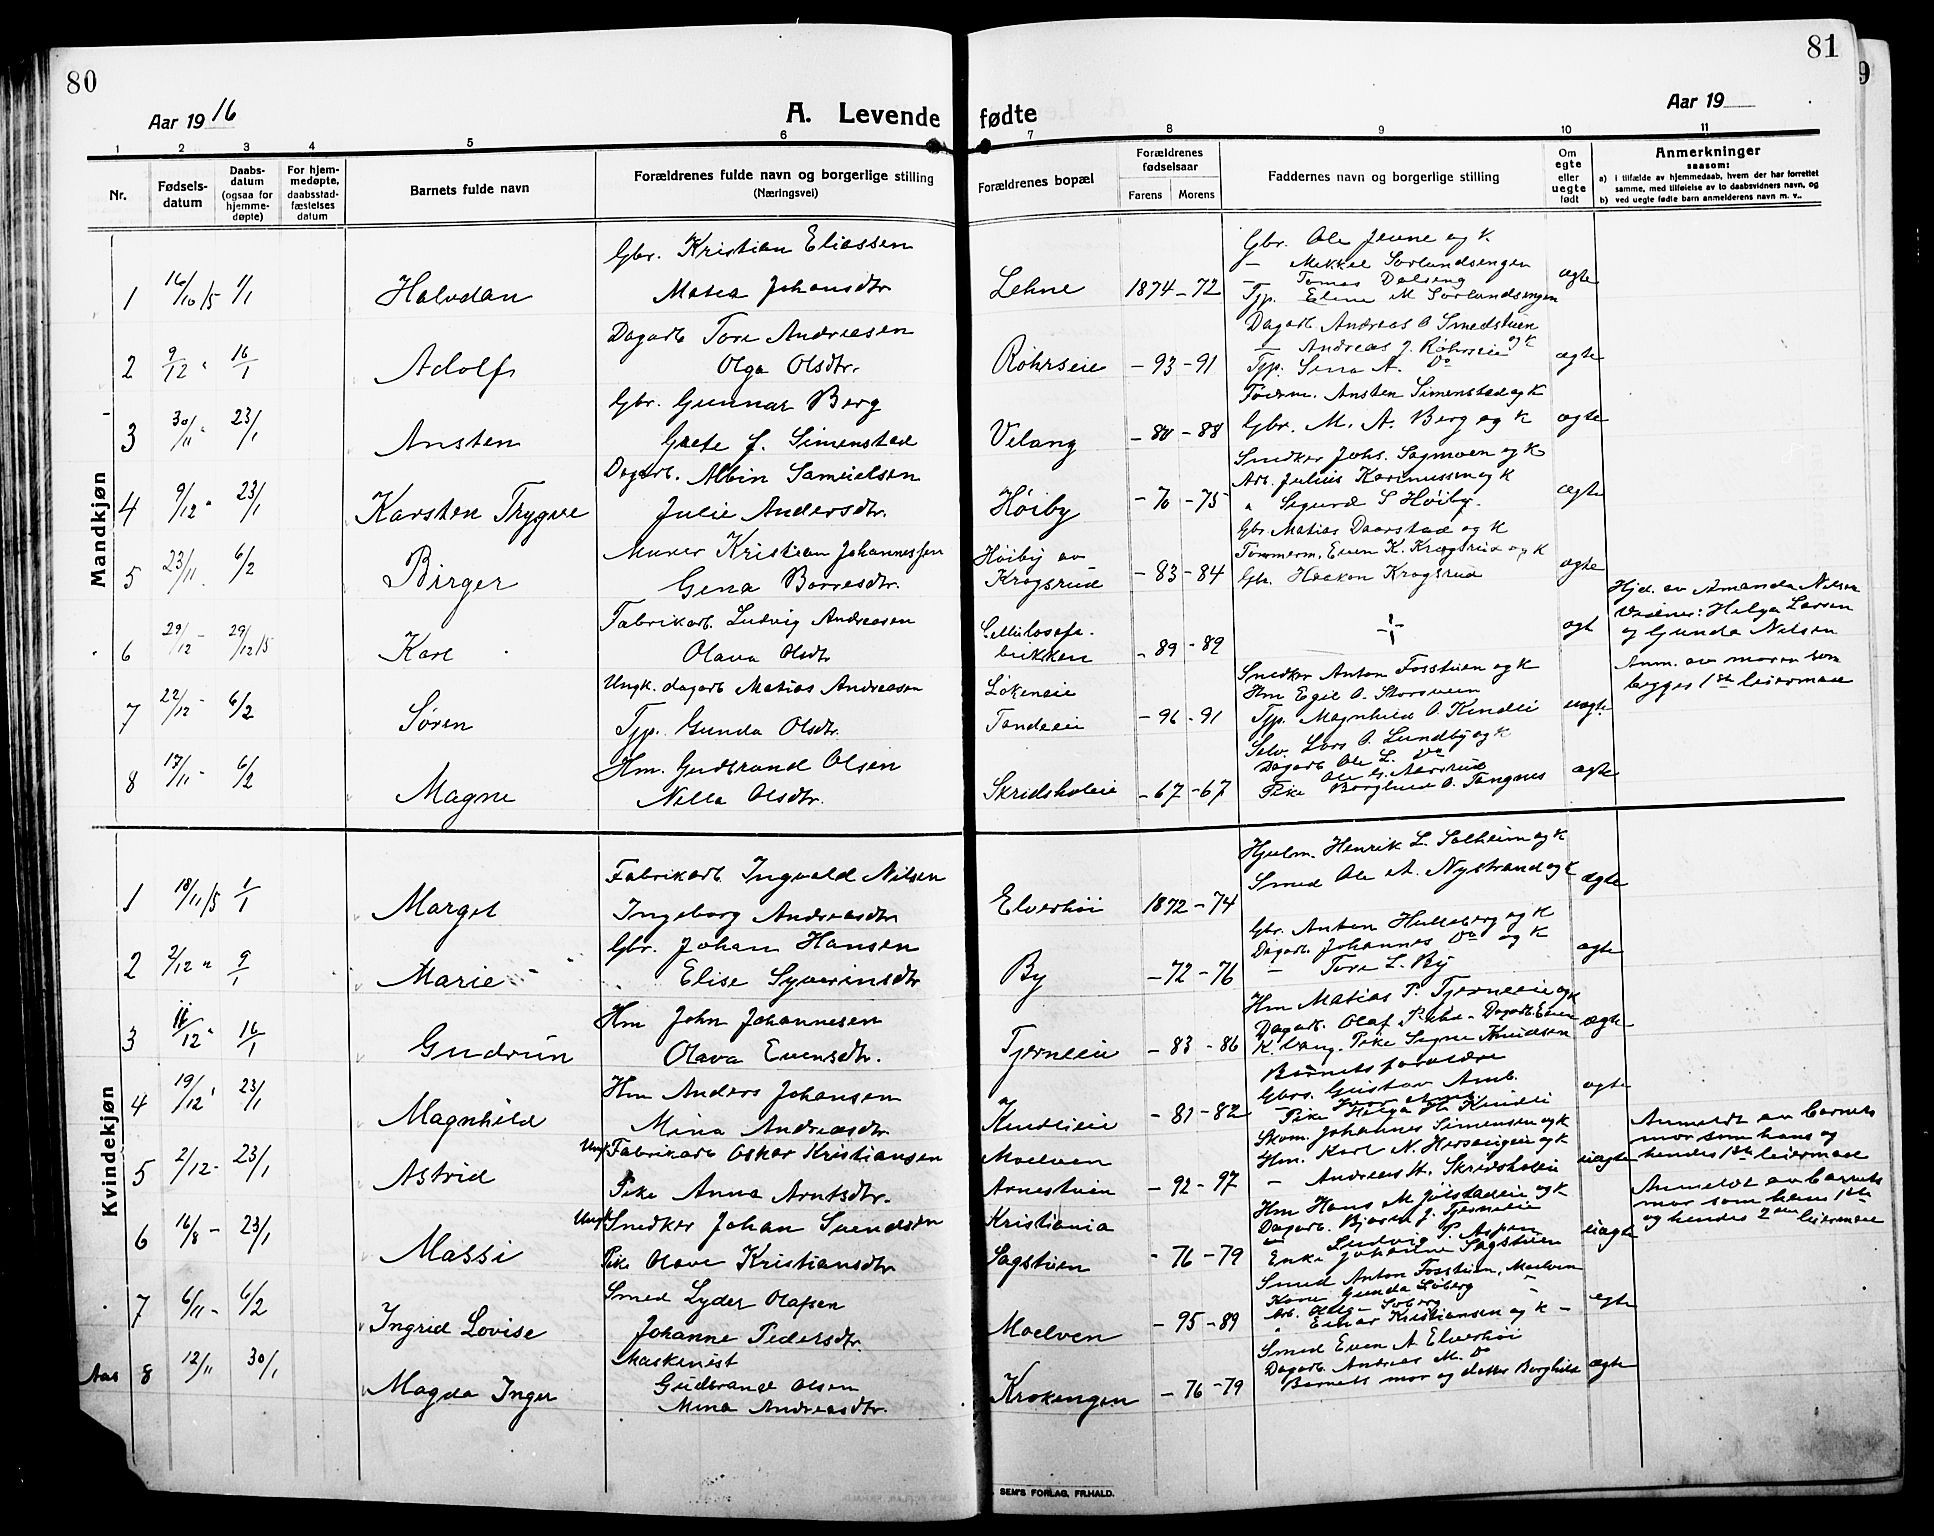 80
81
Aar 1916
A. Levende fødte
Aar 19
1 2 3 4 5 6 7 8 9 10 11
Nr.
Fødsels-
datum
Daabs-
datum
(ogsaa for
hjemme-
døpte)
For hjem-
medøpte,
daabsstad-
fæstelses
datum
Barnets fulde navn
Forældrenes fulde navn og borgerlige stilling
(Næringsvei)
Forældrenes bopæl
Forældrenes
fødselsaar
Farens Morens
Faddernes navn og borgerlige stilling
Om
egte
eller
uegte
født
Anmerkninger
saasom:
a) i tilfælde av hjemmedaab, hvem der har forrettet
samme, med tilføielse av to daabsvidners navn, og
b) ved uegte fødte barn anmelderens navn m. v..
Mandkjøn
Gbr. Kristian Eliassen
Gbr. Ole Jevne og k.
— Mikkel Sørlundsengen
1 16/10 15 1/1 Halvdan Matea Johansdtr Lehne 1874 - 72 — Tomas Dalseng ægte
Tjp. Eline M Sørlundsengen
Dagarb. Tore Andreasen
Dagarb. Andreas O Smedstuen
— Andreas J. Røhrseie og k
2 9/12 " 16/1 Adolf Olga Olsdtr. Røhrseie - 93 - 91 Tjp. Sina A. Do ægte
Gbr. Gunnar Berg
Forerm. Ansten Simenstad og k
3 30/11 " 23/1 Ansten Grete J. Simenstad Velang - 80 - 88 Gbr. M. A. Berg og k ægte
Snedker Johs. Sagmoen og k
Dagarb. Albin Samuelsen
Arb. Julius Rasmussen og k
4 9/12 " 23/1 Karsten Trygve Julie Andersdtr. Høiby - 70 - 75 " Sigurd S Høiby. ægte
Gbr. Matias Daarstad og k
Murer Kristian Johannessen Høiby av
Tømmerm. Even K. Krogsrud og k
5 23/11 6/2 Birger Gina Borresdtr. Krogsrud - 83 - 84 Gbr. Haakon Krogsrud ægte
Hjd. av Amanda Nilsen
Vidner: Helga Larsen
og Gunda Nilsen
Fabrikarb. Ludvig Andreasen Cellulosefa-
6 29/12 - 29/12 15 Karl Olava Olsdtr brikken - 89 - 89 ÷ ægt
Snedker Anton Fosstuen og k
Anm. av moren som
begges 1ste leiermaal
Ungk. dagarb Matias Andreasen Løkeneie
Hm Egil O. Storsveen
7 22/12 - 6/2 Søren Tjp. Gunda Olsdtr. Tandeeie - 96 - 91 Tjp. Magnhild O. Kindli uægte
Selv. Lars O. Lundby og k
Hm. Gudbrand Olsen
Dagarb Ole L. Do
Ole G. Aarsrud
8 17/11 - 6/2 Magne Nilla Olsdtr. Skridsholeie - 67 - 67 Pike Borghild O. Tangnes ægte
Kvindekjøn
Hjulm. Henrik L. Solheim og k
Fabrikarb. Ingvald Nilsen
Smed Ole A. Nystrand og k ægte
1 18/11 15 1/1 Margit Ingeborg Andreasdtr Elverhøi 1872 - 74
Gbr. Johan Hansen
Gbr. Anton Hulleberg og k
Dagarb. Johannes Do og k
2 2/12 " 9/1 Marie Elise Syverinsdtr By - 72 - 76 — Tore L. By ægte
Hm John Johannesen
Hm Matias P. Tjerneeie og k
3 11/12 " 16/1 Gudrun Olava Evensdtr. Tjerneeie - 83 - 86 K. Vang. Pike Signe Knudsen ægte
Barnets forældre
Hm Anders Johansen
Gbrs. Gustav Amb.
4 19/12 " 23/1 Magnhild Mina Andreasdtr Kindlieie - 81 - 82 Pike Helga H. Kindli ægte
Skom. Johannes Simensen og k
Anmeldt av barnets
mor som hans og
hendes 1ste leiermaal
Ungk Fabrikarb Oskar Kristiansen Moelven
5 2/12 - 23/1 Astrid Pike Anna Arntsdtr. Arnestuen - 92 - 97 — Andreas H. Skridsholeie uægte
Anmeldt av barnets
mor som hans 1ste
og hendes 2den leiermaal
Ungk Snedker Johan Svendsen Kristiania
Dagarb. Bjarne J. Tjerneeie
— Ludvig P. Aspen
6 16/8 - 23/1 Massi Pike Olave Kristiansdtr Sagstuen - 76 - 79 Enke Johanne Sagstuen uægte
Smed Lyder Olafsen
Smed Anton Fosstuen, Moelven
Kone Gunda Løberg —
7 6/11 - 6/2 Ingrid Lovise Johanne Pedersdtr. Moelven - 95 - 89 " Einar Kristiansen og k - ægte
Maskinist
Smed Even A Elverhøi
Aas 8 12/11 30/1 Magda Inger Gudbrand Olsen Krokengen - 76 - 79 Dagarb. Andreas M. Do ægte
Mina Andreasdtr.
Barnets mor og datter Borghild
SEM'S FORLAG, FR.HALD.